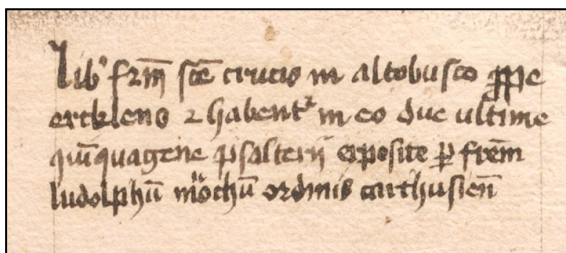 Lib' fr̄m sc̄e crucis in altobusco ꝓpe
erclens ⁊ habent᷑ in eo due ultime
quīquagene psalterij exposite ꝑ frēm
ludolphū mōchū ordinis carthusien̄